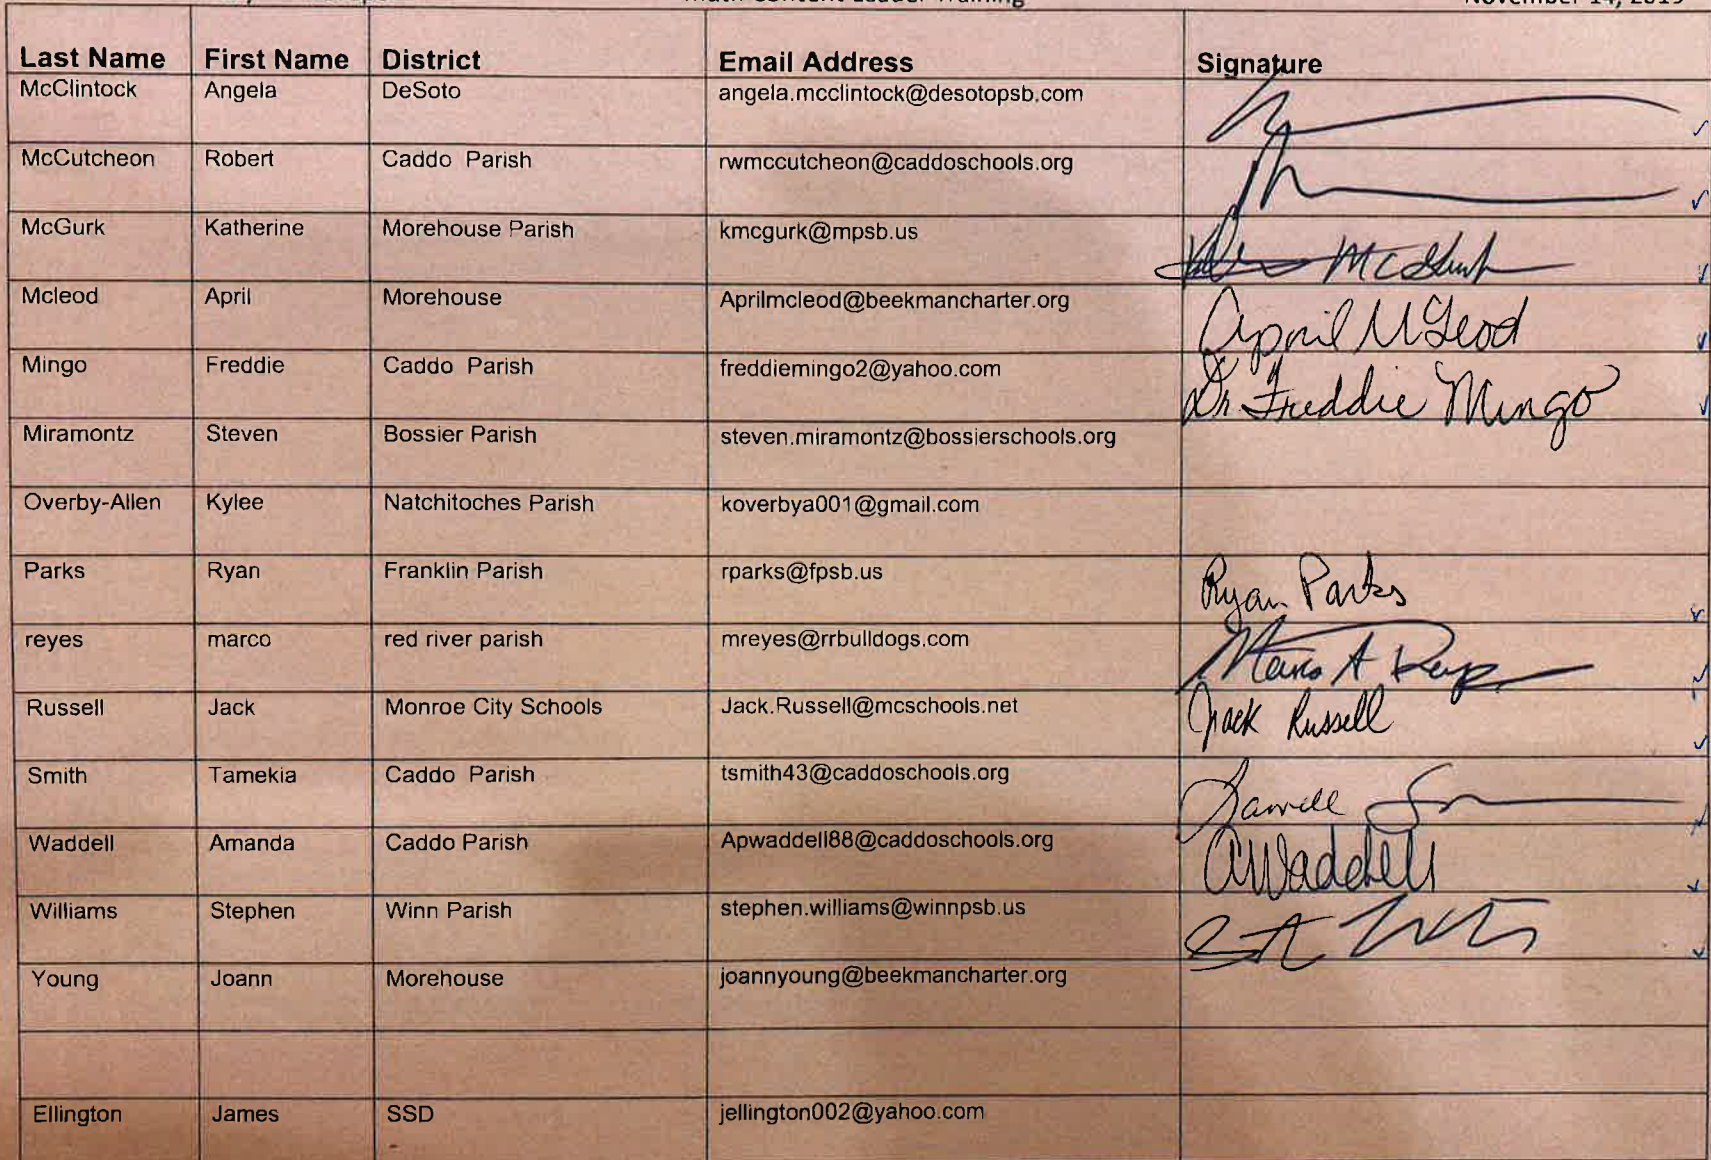 Math Content Leader Training November 14, 2019
Last Name First Name District Email Address Signature
McClintock Angela DeSoto angela.mcclintock@desotopsb.com
McCutcheon Robert Caddo Parish rwmccutcheon@caddoschools.org
McGurk Katherine Morehouse Parish kmcgurk@mpsb.us McGurk
Mcleod April Morehouse Aprilmcleod@beekmancharter.org April McLeod
Mingo Freddie Caddo Parish freddiemingo2@yahoo.com Dr. Freddie Mingo
Miramontz Steven Bossier Parish steven.miramontz@bossierschools.org
Overby-Allen Kylee Natchitoches Parish koverbya001@gmail.com
Parks Ryan Franklin Parish rparks@fpsb.us Ryan Parks
reyes marco red river parish mreyes@rrbulldogs.com Marco A Reyes
Russell Jack Monroe City Schools Jack.Russell@mcschools.net Jack Russell
Smith Tamekia Caddo Parish tsmith43@caddoschools.org
Waddell Amanda Caddo Parish Apwaddell88@caddoschools.org AWaddell
Williams Stephen Winn Parish stephen.williams@winnpsb.us
Young Joann Morehouse joannyoung@beekmancharter.org
Ellington James SSD jellington002@yahoo.com